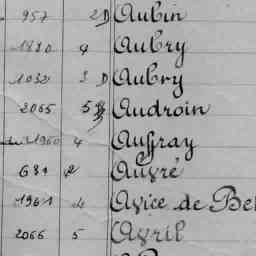 957 2 D Aubin
1880 4 Aubry
1032 3 D Aubry
2065 5 Audroin
1960 4 Auffray
681 2 Auvré
1961 4 Avice de Bel
2066 5 Avril